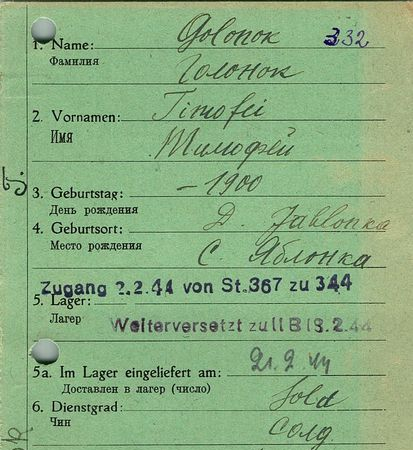 Golonok 332
1. Name:
Фамилия Голонок
Timofei
2. Vornamen:
Имя Тимофей
3. Geburtstag: - 1900
День рождения
4. Geburtsort: D. Jablonka
Место рождения С Яблонка
Zugang 2.2.44 von St.367 zu 344
5. Lager:
Лагер Weiterversetzt zu II B 18.2.44
21.2.44
5a. Im Lager eingeliefert am:
Доставлен в лагер (число)
6. Dienstgrad: Sold
Чин солд.